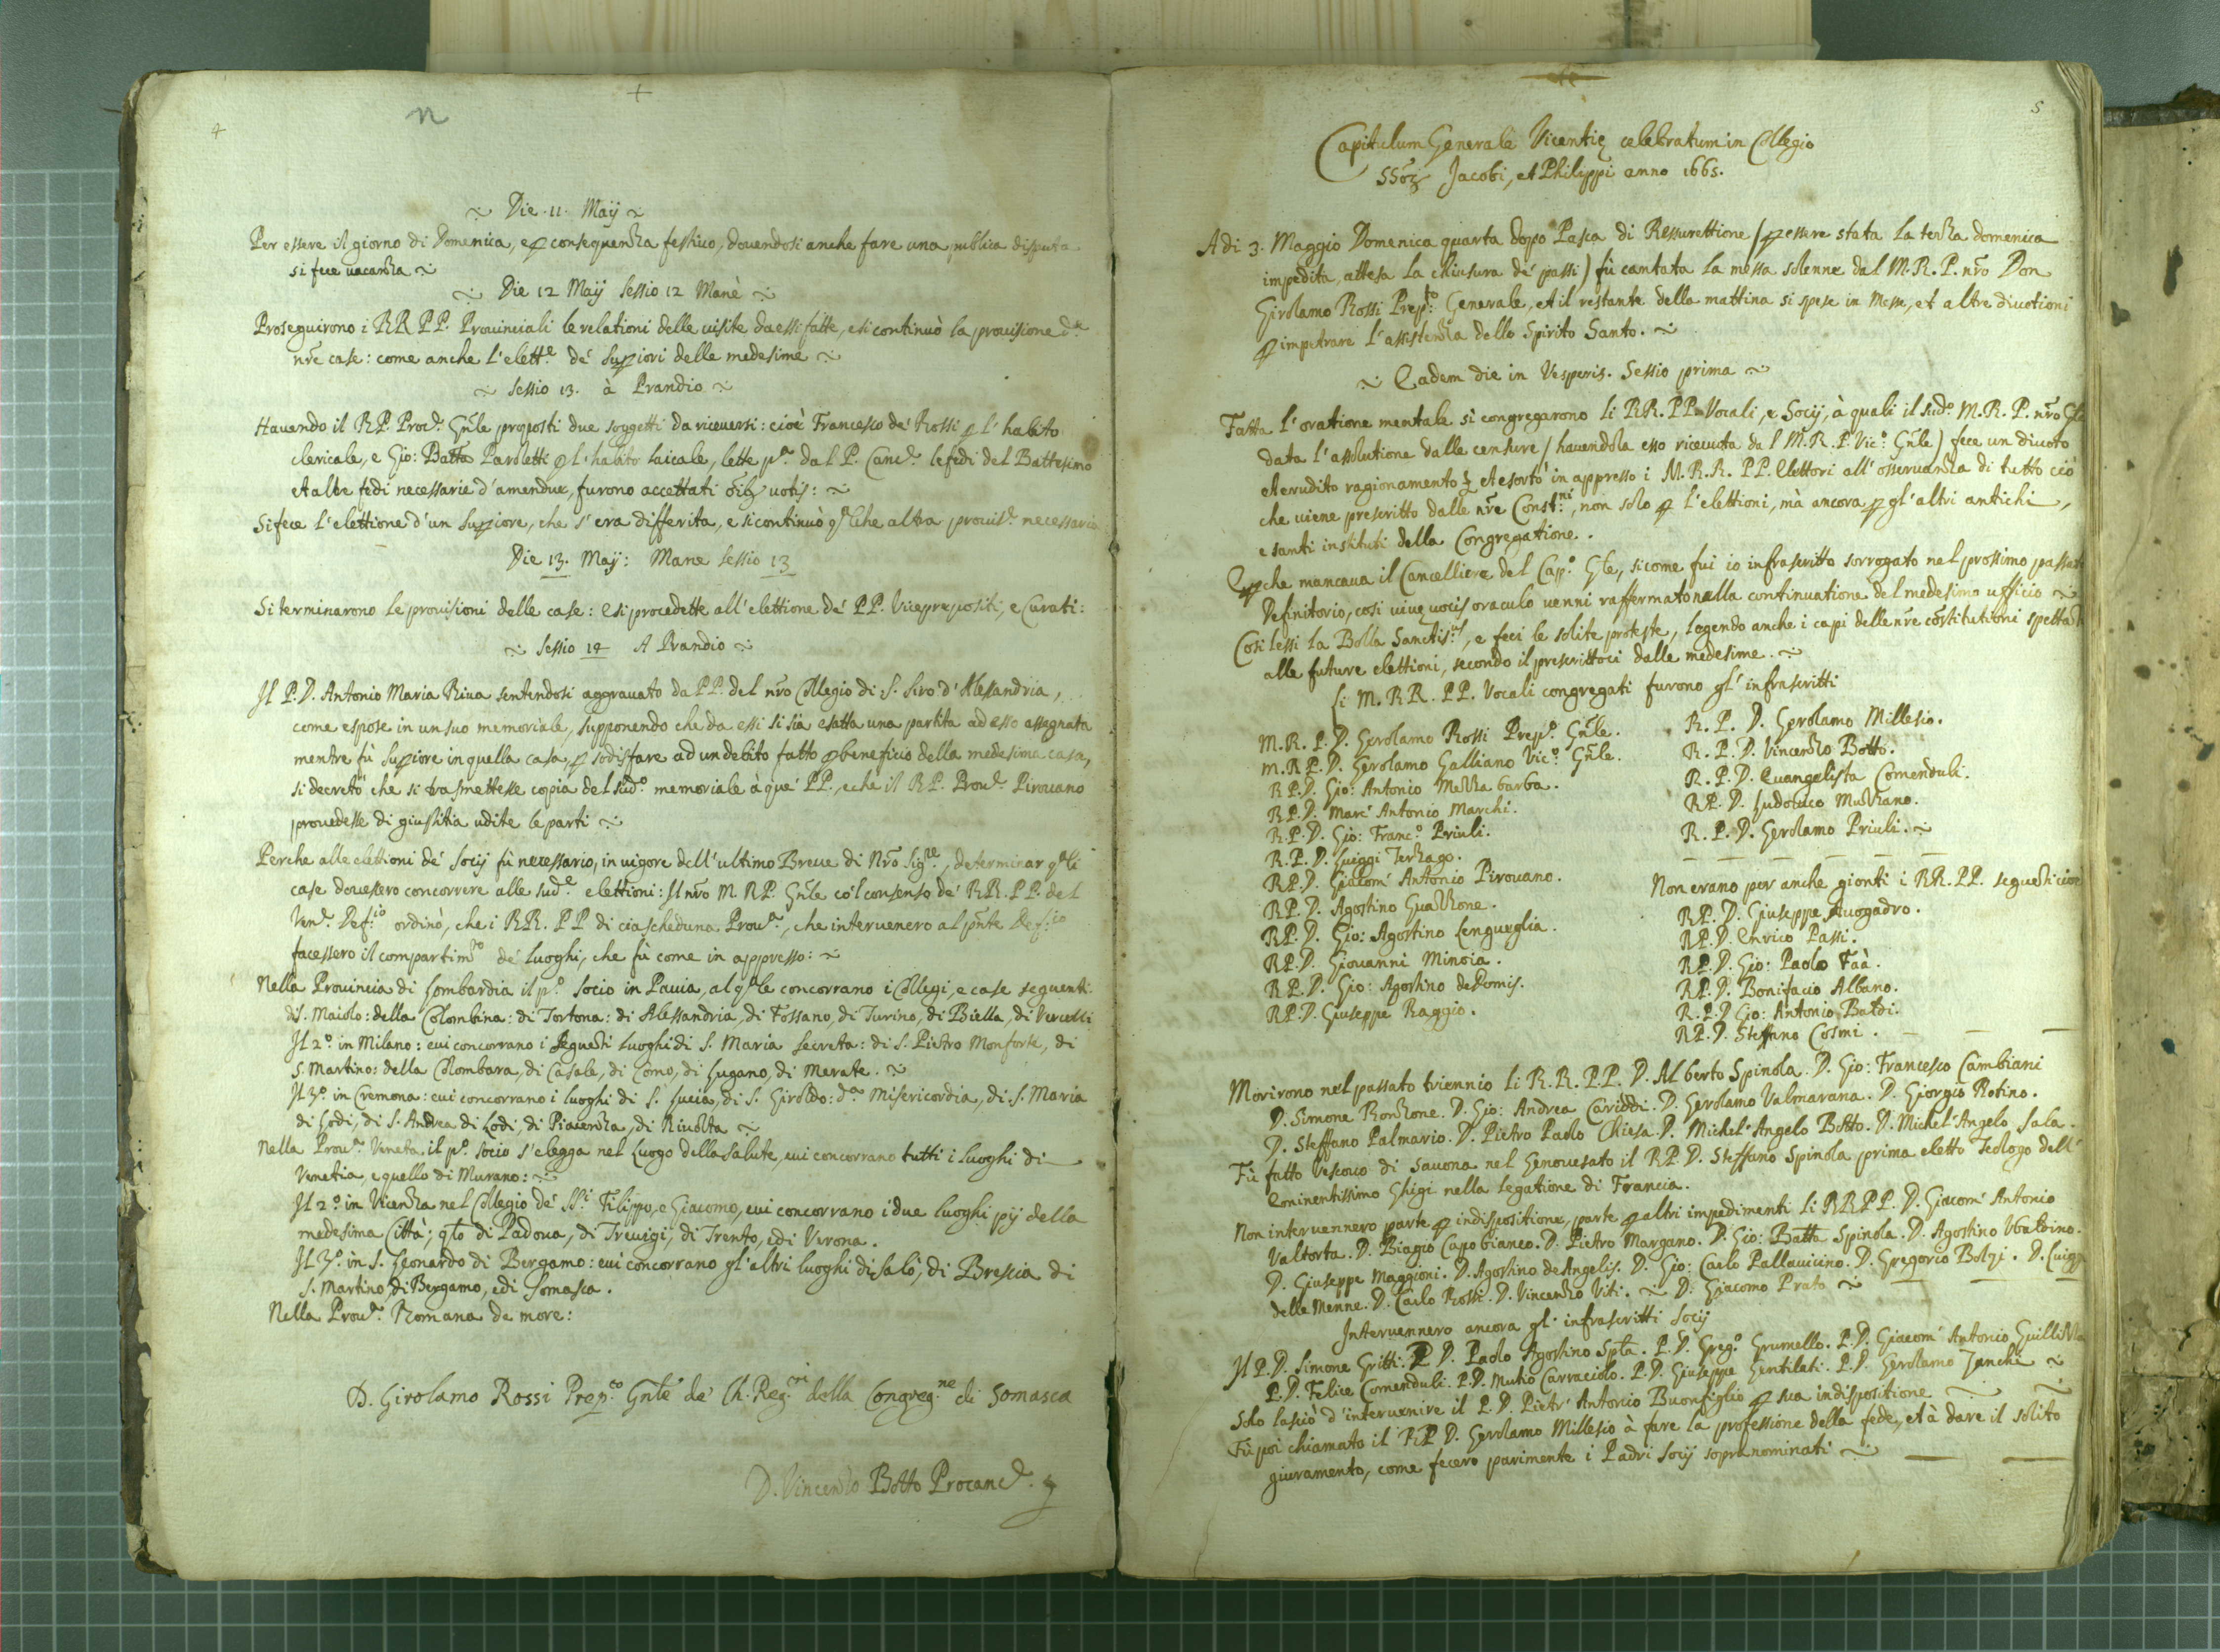 4
n
Die .11. Maij
Per essere il giorno di Domenica, e p consequenza festiuo, douendosi anche fare una publica disputa
si fece uacanza
Die 12 Maij Sessio 12 Manè
Proseguirono i RR PP. Prouinciali le relationi delle uisite da essi fatte, e si continuò la prouisione
nr̃e case: come anche l'elett.e de' Supiori delle medesime
Sessio 13. à Prandio
Hauendo il R.P. Proc.r Gñle proposti due soggetti da riceuersi: cioè Francesco de' Rossi p l'habito
clericale, e Gio: Batta Paroletti p l'habito laicale, lette p.a dal P. Canc.re le fedi del Battesimo
et altre fedi necessarie d'amendue, furono accettati õib; uotis:
Si fece l'elettione d'un Supiore, che s'era differita, e si continuò q.lche altra prouis.e necessaria
Die 13. Maij: Mane Sessio 13
Si terminarono le prouisioni delle case: e si procedette all'elettione de' PP. Viceprepositi, e Curati:
Sessio 14 A Prandio
Il P.D. Antonio Maria Riua sentendosi aggrauato da PP. del nr̃o Collegio di S. Siro d'Alessandria,
come espose in un suo memoriale, supponendo che da essi si sia esatta una partita ad esso assegnata
mentre fù Supiore in quella casa, p sodisfare ad un debito fatto p beneficio della medesima casa,
si decretò che si trasmettesse copia del sud.o memoriale à que' PP., e che il R.P. Prou.le Pirouano
prouedesse di giustitia udite le parti
Perche alle elettioni de' Socij fù necessario, in uigore dell'ultimo Breue di Nr̃o Sig.re, determinar q.li
case douessero concorrere alle sud.e elettioni: Il nr̃o M. R.P. Gñle co'l consenso de' RR. PP. del
Ven.e Def.io ordinò, che i RR. PP di ciascheduna Prou.a, che interuenero al pñte Def.io
facessero il compartim.to de' Luoghi, che fù come in appresso:
Nella Prouincia di Lombardia il p.o Socio in Pauia, al q.ale concorrano i Collegi, e case seguenti
di S. Maiolo: della Colombina: di Tortona: di Alessandria, di Fossano, di Turino, di Biella, di Vercelli
Il 2.o in Milano: cui concorrano i seguenti Luoghi di S. Maria Secreta: di S. Pietro Monforte, di
S. Martino: della Colombara, di Casale, di Como, di Lugano, di Merate.
Il 3.o in Cremona: cui concorrano i luoghi di S. Lucia, di S. Giroldo: d.a Misericordia, di S. Maria
di Lodi, di S. Andrea di Lodi, di Piacenza, di Riuolta
Nella Prou.a Veneta il p.o Socio s'elegga nel Luogo della Salute, cui concorrano tutti i Luoghi di
Venetia, e quello di Murano:
Il 2.o in Vicenza nel Collegio de' SS.i Filippo, e Giacomo, cui concorrano i due luoghi pij della
medesima Città; q.to di Padoua, di Treuigi, di Trento, e di Verona.
Il 3.o in S. Leonardo di Bergamo: cui concorrano gl'altri luoghi di Salò, di Brescia di
S. Martino di Bergamo, e di Somasca.
Nella Prou.a Romana de more:
D. Girolamo Rossi Prep.to Gñle de' Ch. Reg.ri della Congreg.ne di Somasca
D. Vincenzo Botto Procanc.e
5
Capitulum Generale Vicentię celebratum in Collegio
SSõrz Jacobi, et Philippi anno 1665.
A di 3. Maggio Domenica quarta dopo Pasca di Ressurettione (p essere stata la terza domenica
impedita, attesa la chiusura de' passi) fù cantata la messa solenne dal M.R.P. nr̃o Don
Girolamo Rossi Prep.to Generale, et il restante della mattina si spese in Messe, et altre diuotioni
p impetrare l'assistenza dello Spirito Santo.
Eadem die in Vesperis. Sessio prima
Fatta l'oratione mentale si congregarono li RR. PP. Vocali, e Socij, à quali il sud.o M.R.P. nr̃o
data l'assolutione dalle censure (hauendola esso riceuuta dal M.R.P. Vic.o Gñle) fece un diuoto
et erudito ragionamento et esortò in appresso i M.R.R. PP. Elettori all'osseruanza di tutto ciò
che uiene prescritto dalle nr̃e Const.ni, non solo p l'elettioni, mà ancora p gl'altri antichi,
e santi instituti della Congregatione.
E pche mancaua il Cancelliere del Cap.o Gñle, si come fui io infrascritto sorrogato nel prossimo passato
Definitorio, così uiuę uocis oraculo uenni raffermato nella continuatione del medesimo ufficio
Così lessi la Bolla Sanctis.us, e feci le solite proteste, legendo anche i capi delle nr̃e cõstitutioni spettanti
alle future elettioni, secondo il prescrittoci dalle medesime.
Li M. RR. PP. Vocali congregati furono gl'infrascritti
M.R.P.D. Gerolamo Rossi Prep.o Gñle.
M.R.P.D. Gerolamo Galliano Vic.o Gñle.
R.P.D. Gio: Antonio Mezzabarba.
R.P.D. Marc' Antonio Marchi.
R.P.D. Gio: Franc.o Priuli.
R.P.D. Luiggi Terzago.
R.P.D. Giacom' Antonio Pirouano.
R.P.D. Agostino Guazzone.
R.P.D. Gio: Agostino Lengueglia.
R.P.D. Giouanni Minoia.
R.P.D. Gio: Agostino de Domis.
R.P.D. Giuseppe Raggio.
R.P.D. Gerolamo Millesio.
R.P.D. Vincenzo Botto.
R.P.D. Euangelista Comenduli.
R.P.D. Ludouico Muzzano.
R.P.D. Gerolamo Priuli.
Non erano per anche gionti i RR. PP. seguenti cioè
R.P.D. Giuseppe Auogadro.
R.P.D. Enrico Passi.
R.P.D. Gio: Paolo Faà.
R.P.D. Bonifacio Albano.
R.P.D. Gio: Antonio Batdi.
R.P.D. Steffano Cosmi.
Morirono nel passato triennio li R.R. P.P. D. Alberto Spinola. D. Gio: Francesco Cambiani
D. Simone Ronzone. D. Gio: Andrea Cariddi. D. Gerolamo Valmarana. D. Giorgio Rotino.
D. Steffano Palmario. D. Pietro Paolo Chiesa. D. Michel'Angelo Botto. D. Michel'Angelo Sala.
Fù fatto Vescouo di Sauona nel Genouesato il R.P.D. Steffano Spinola prima eletto Teologo dell'
Eminentissimo Ghigi nella legatione di Francia.
Non interuennero parte p indispositione, parte p altri impedimenti li RR.PP. D. Giacom' Antonio
Valtorta. D. Biagio Capobianco. D. Pietro Margano. D. Gio: Batta Spinola. D. Agostino Vbaldino.
D. Giuseppe Maggioni. D. Agostino de Angelis. D. Gio: Carlo Pallauicino. D. Gregorio Bolzi. D. Luigi
delle Menne. D. Carlo Rossi. D. Vincenzo Viti. D. Giacomo Prato
Interuennero ancora gl'infrascritti Socij
Il P.D. Simone Gritti. P.D. Paolo Agostino Spta. P.D. Greg.o Grumello. P.D. Giacom' Antonio
P.D. Felice Comenduli. P.D. Mutio Carraciolo. P.D. Giuseppe Gentilati. P.D. Gerolamo Zanchi
Solo lasciò d'interuenire il P.D. Pietr' Antonio Buonfiglio p sua indispositione.
Fù poi chiamato il R.P.D. Gerolamo Millesio à fare la professione della fede, et à dare il solito
giuramento, come fecero parimente i Padri Socij sopranominati